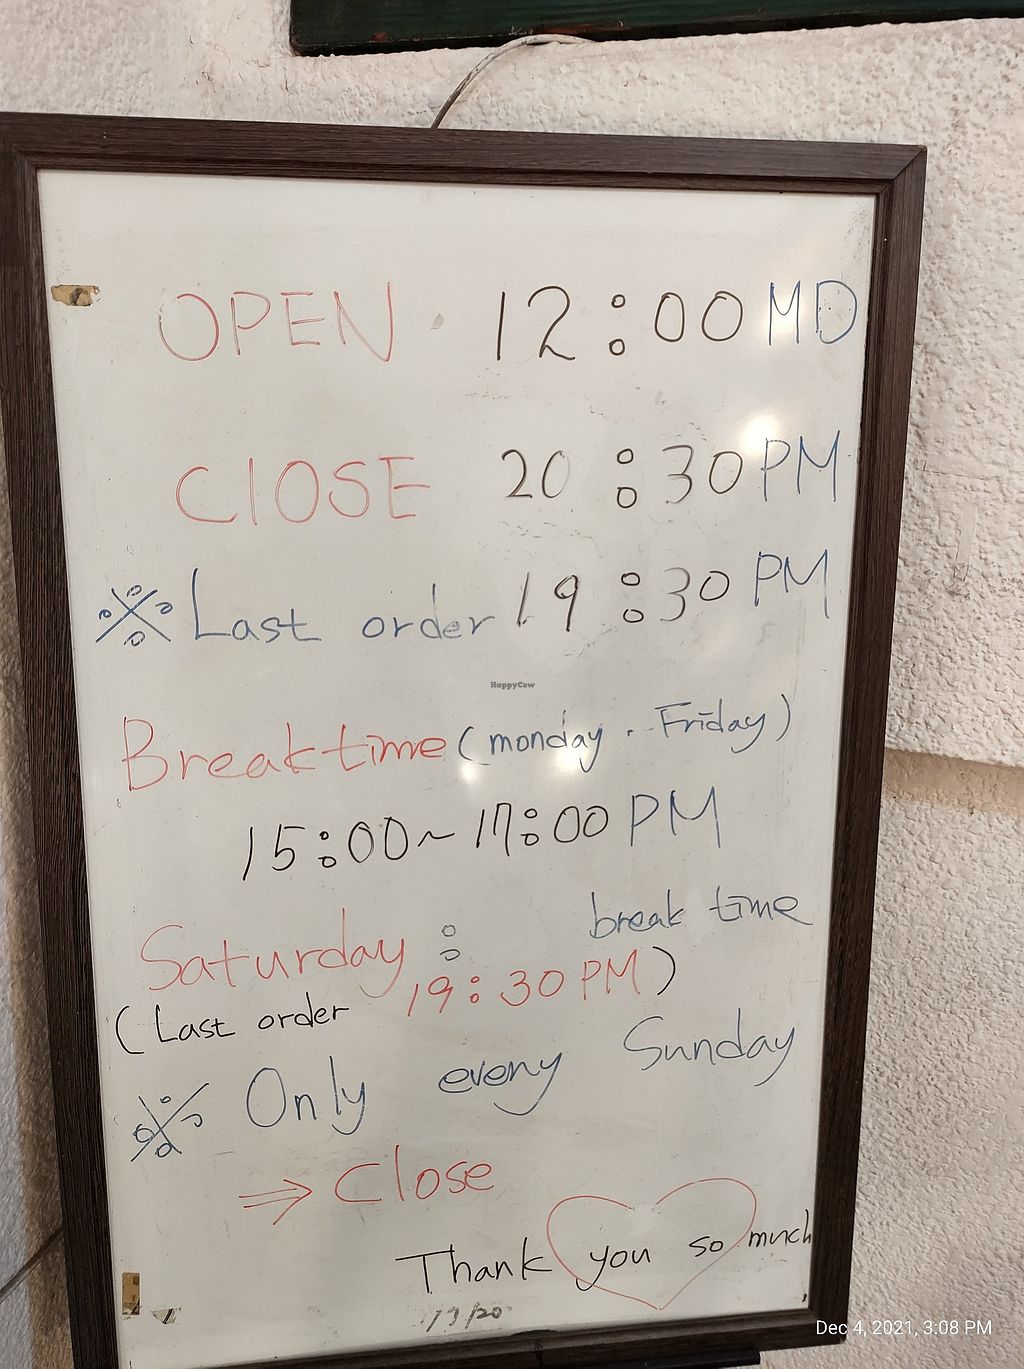 OPEN 12:00 MD
ClOSE 20:30 PM
※ Last order 19:30 PM
HappyCow
Break time (monday . Friday)
15:00~17:00 PM
Saturday : break time
(Last order 19:30 PM)
※ Only every Sunday
⇒ Close
Thank you so much
Dec 4, 2021, 3:08 PM